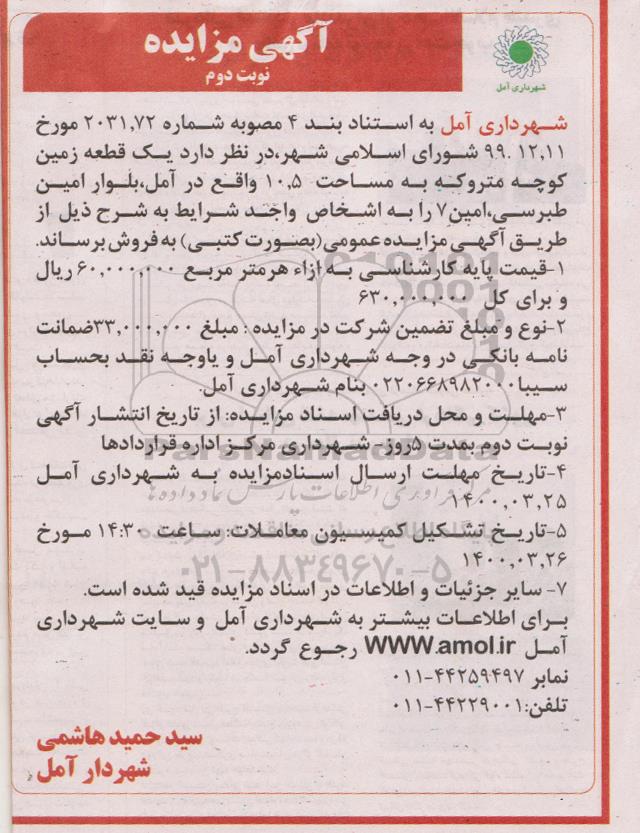 آگهی مزایده
نوبت دوم
شهرداری آمل
شهرداری آمل به استناد بند ۴ مصوبه شماره ۲۰۳۱,۷۲ مورخ
۹۹.۱۲,۱۱ شورای اسلامی شهر،در نظر دارد یک قطعه زمین
کوچه متروکه به مساحت ۱۰,۵ واقع در آمل،بلوار امین
طبرسی،امین۷ را به اشخاص واجد شرایط به شرح ذیل از
طریق آگهی مزایده عمومی(بصورت کتبی) به فروش برساند.
۱-قیمت پایه کارشناسی به ازاء هرمتر مربع ۶۰,۰۰۰,۰۰۰ ریال
و برای کل ۶۳۰,۰۰۰,۰۰۰
۲-نوع و مبلغ تضمین شرکت در مزایده : مبلغ ۳۳,۰۰۰,۰۰۰ضمانت
نامه بانکی در وجه شهرداری آمل و یاوجه نقد بحساب
سیبا۰۲۲۰۶۶۸۹۸۲۰۰۰ بنام شهرداری آمل.
۳-مهلت و محل دریافت اسناد مزایده: از تاریخ انتشار آگهی
نوبت دوم بمدت ۵روز- شهرداری مرکز اداره قراردادها
۴-تاریخ مهلت ارسال اسنادمزایده به شهرداری آمل
۱۴۰۰,۰۳,۲۵
۵-تاریخ تشکیل کمیسیون معاملات: ساعت ۱۴:۳۰ مورخ
۱۴۰۰,۰۳,۲۶
۷- سایر جزئیات و اطلاعات در اسناد مزایده قید شده است.
برای اطلاعات بیشتر به شهرداری آمل و سایت شهرداری
آمل WWW.amol.ir رجوع گردد.
نمابر ۴۴۲۵۹۴۹۷-۰۱۱
تلفن:۴۴۲۲۹۰۰۱-۰۱۱
سید حمید هاشمی
شهردار آمل
ParsNamadData
۰۲۱-۸۸۳۴۹۶۷۰-۵